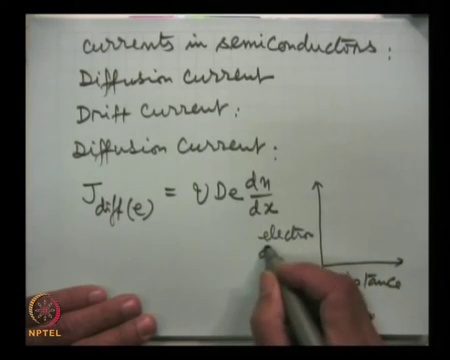 Currents in semiconductors:
Diffusion Current
Drift Current:
Diffusion Current:
J diff(e) = q De dn/dx
electron
distance
NPTEL